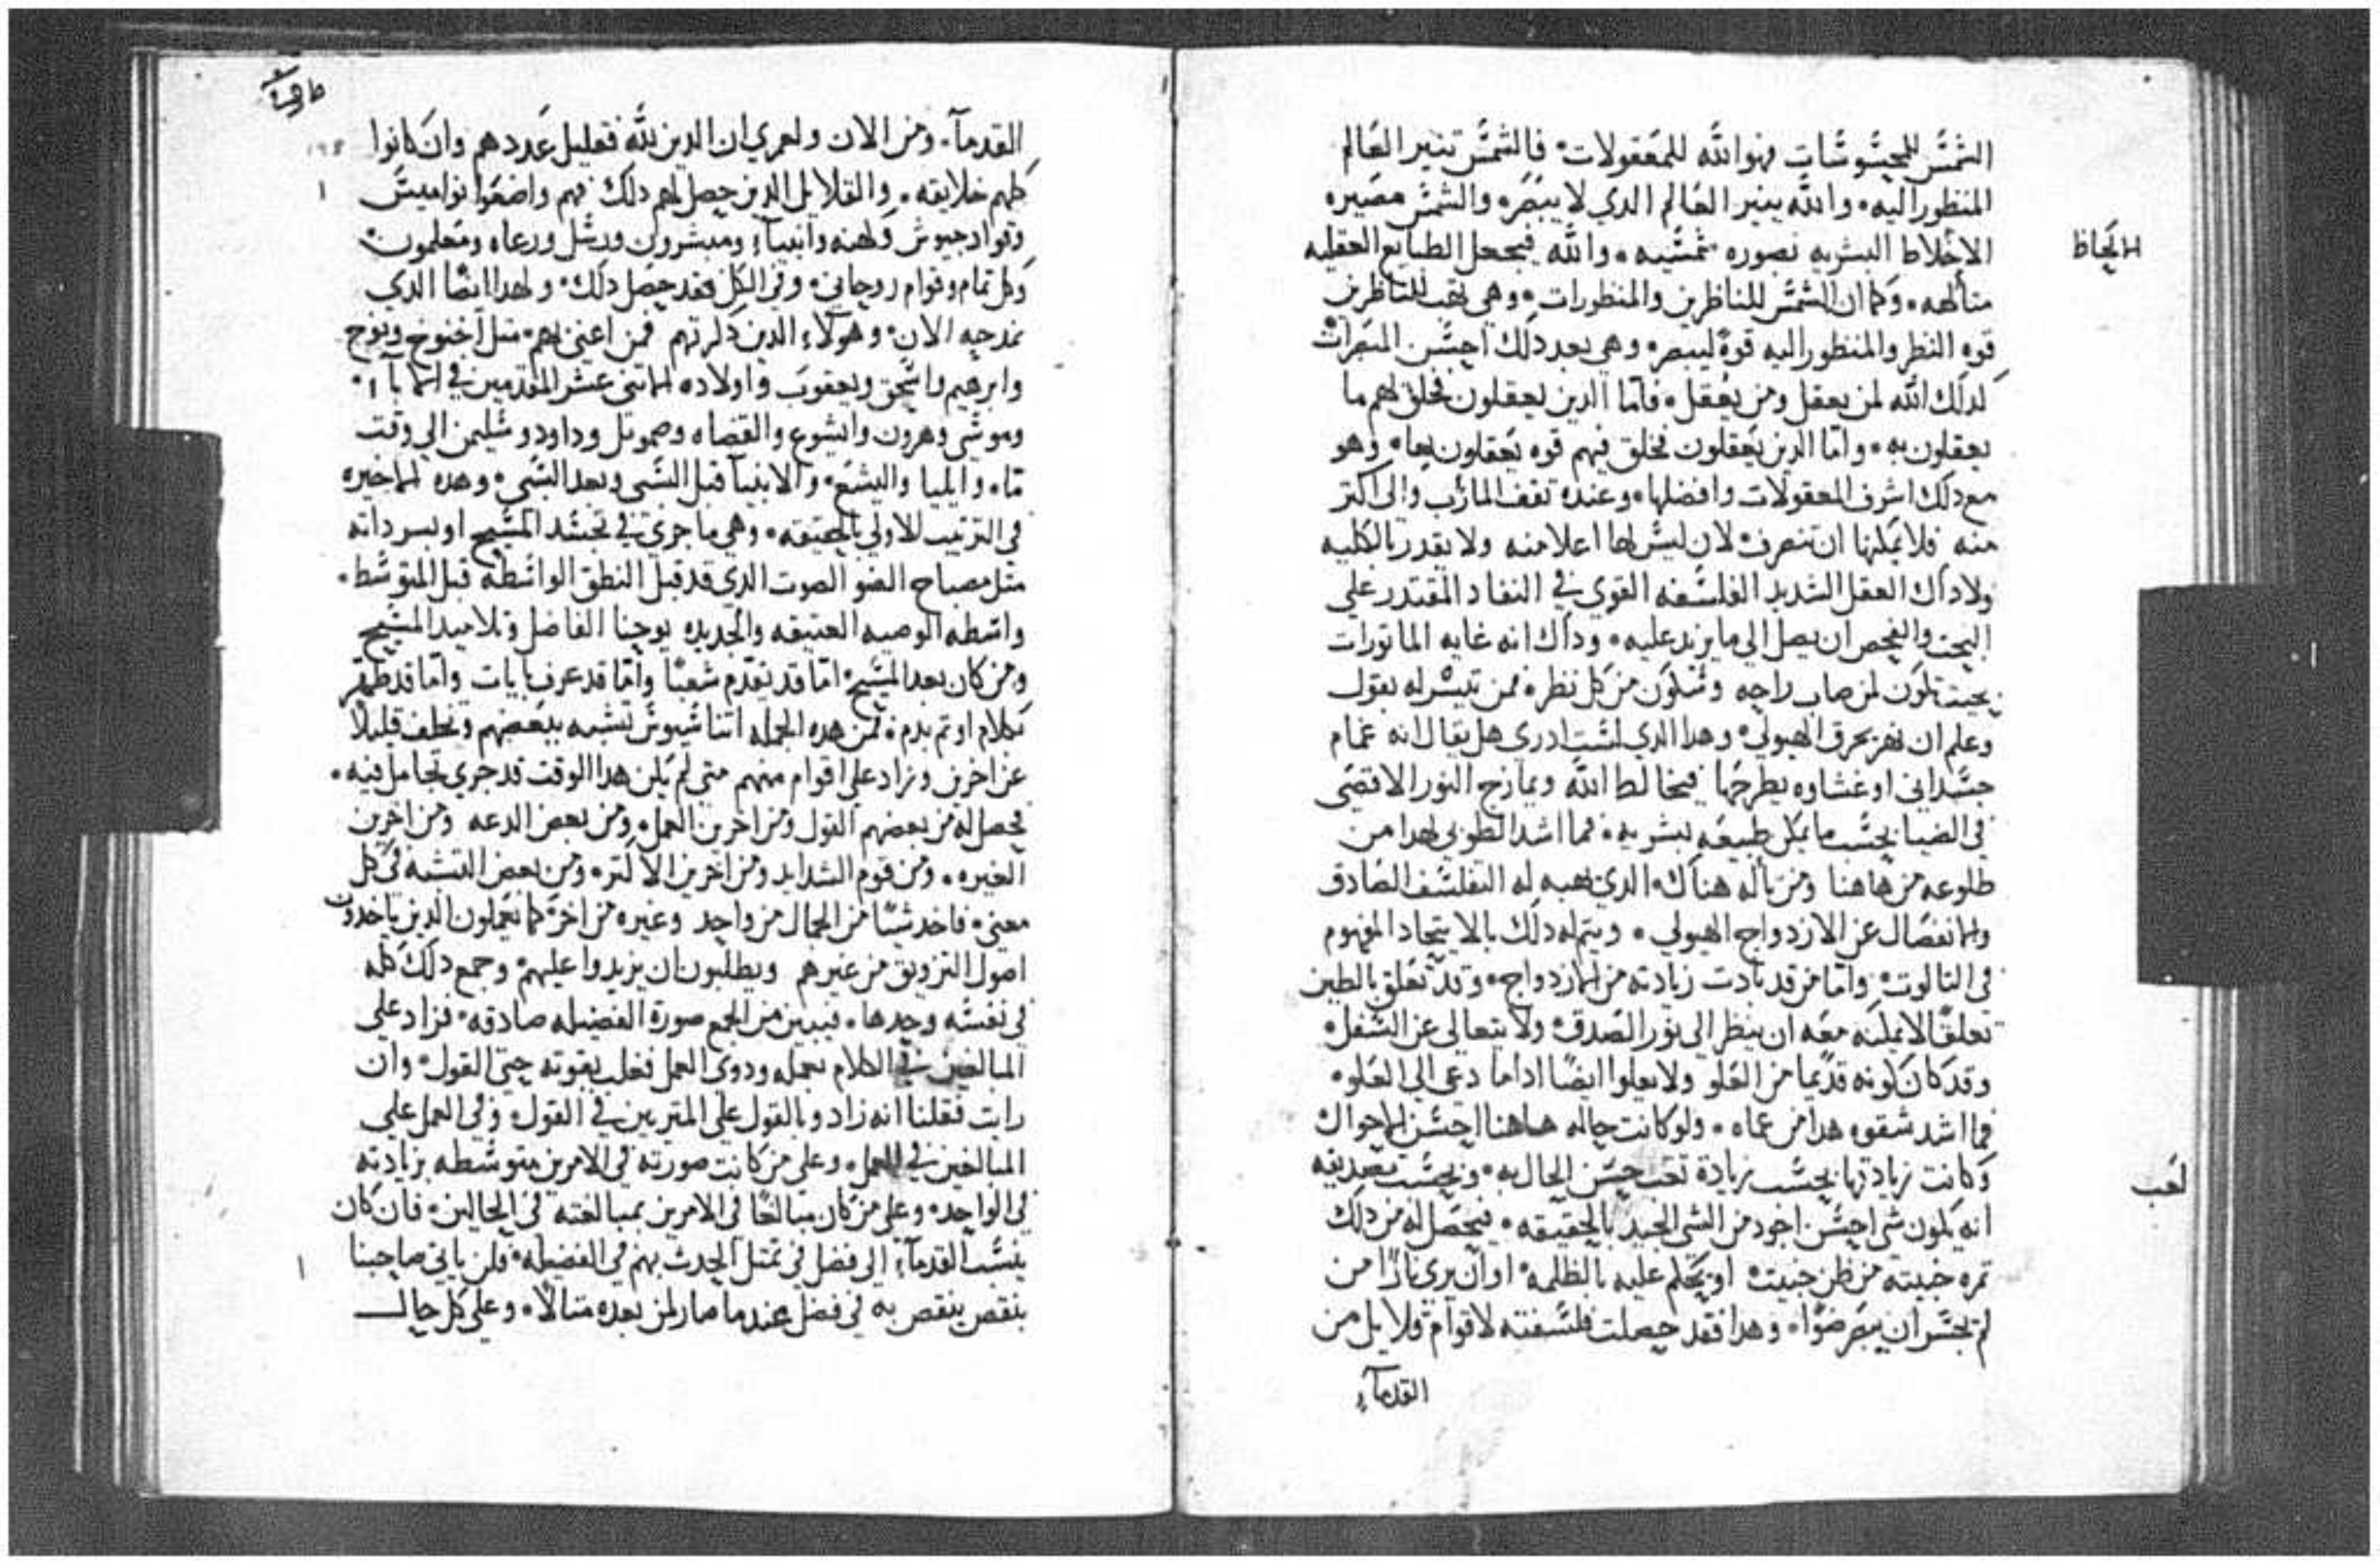 الشمش للمحشوشات فهو الله للمعقولات فالشمش تنير العالم
المنظور اليه والله ينير العالم الدي لا يبصر والشمش مصيره
الالحاظ
الاخلاط البشريه بصوره شمشيه والله فيجعل الطبايع العقليه
متالهه وكما ان الشمش للناظرين والمنظورات وهي تهب للناظرين
قوه النظر والمنظور اليه قوة ليبصر وهي بعد دلك احشن المبصرات
كدلك الله لمن يعقل ومن يُعقل فاما الدين يعقلون فخلق لهم ما
يعقلون به واما الدين يُعقلون فخلق فيهم قوه يُعقلون بها وهو
مع دلك اشرف المعقولات وافضلها وعنده تقف المارب والى اكثر
منه فلا يمكنها ان تنصرف لان ليش لها اعلا منه ولا يقدر بالكليه
ولا داك العقل الشديد الفلشفه القوي في النفاد المقتدر على
البحث والفحص ان يصل الى ما يزيد عليه وداك انه غايه الماتورات
بحيث تكون لمن صاب راحه وشكون من كل نظره فمن تيشر له بقول
وعلم ان يخرق الهيولي وهدا الدي لشت ادري هل يقال انه غمام
جشداني او غشاوه يطرحها فيخالط الله ويمازج النور الاقصى
في الضيا بحشب ما يمكن طبيعه بشريه فما اشد الطوبى لهدا من
طلوعه من هاهنا ومن تاله هناك الدي يهبه له التفلشف الصادق
والانفصال عن الازدواج الهيولي ويتم له دلك بالايتحاد المفهوم
في التالوت واما من قد تادت زيادته من الازدواج وقد تعلق بالطين
تعلقًا لا يمكنه معه ان ينظر الى نور الصدق ولا يتعالى عن الشفل
وقد كان كونه قديما من العلو ولا يعلوا ايضًا ادا ما دعي الى العلو
فما اشد شقوه هدا من عماه ولو كانت حاله هاهنا احشن الاحوال
لعب
وكانت زيادتها بحشب زيادة حشن الحال به وبحشب تصديقه
انه يكون شي احشن اجود من الشي الجيد بالحقيقه فيحصل له من دلك
تمره خبيته من ظن خبيت او يحكم عليه بالظلمه او ان يرى نارًا من
لم يحشر ان يبصر ضوًا وهدا فقد حصلت فلشفته لاقوام قلايل من
القدمآء
القدمآء ومن الان ولعمري ان الدين لله فقليل عددهم وان كانوا
كلهم خلايقه والقلايل الدين حصل لهم دلك فهم واضعوا نواميش
وقواد جيوش وكهنه وانبيآء ومبشرون ورشل ورعاه ومعلمون
وكل تمام وقوام روحاني وفي الكل فقد حصل دلك ولهدا ايضًا الدي
نمدحه الان وهولاء الدين دكرتهم فمن اعني بهم مثل اخنوخ ونوح
وابرهيم واشحق ويعقوب واولاده الاتني عشر المقدمين في الابآء
وموشى وهرون وايشوع والقضاه وصموئل وداود وشليمن الى وقت
ما وايليا واليشع والانبيا قبل الشبي وبعد الشبي وهده الاخيره
في الترتيب الاولى بالحقيقه وهي ما جرى في تجشد المشيح او يسر داته
مثل مصباح الضو الصوت الدي قد قبل النطق الواشطه قبل المتوشط
واشطه الوصيه العتيقه والجديده يوحنا الفاضل وتلاميد المشيح
ومن كان بعد المشيح اما قد تقدم شعبًا واما قد عرف بايات واما قد ظهر
بكلام او تم بدم فمن هده الجمله اتناشيوش تشبه ببعضهم وتخلف قليلًا
عن اخرين وزاد على اقوام منهم متى لم يكن هدا الوقت قد جري تحامل فيه
فحصل له من بعضهم القول ومن اخرين العمل ومن بعض الدعه ومن اخرين
الغيره ومن قوم الشدايد ومن اخرين الاكتر ومن بعض التشبه في كل
معنى فاخد شيئًا من الجمال من واحد وغيره من اخر كما يعملون الدين ياخدون
اصول التزويق من غيرهم ويطلبون ان يزيدوا عليهم وجمع دلك كله
في نفشه وحدها فيبين من الجمع صورة الفضيله صادقه فزاد على
المبالغين في الكلام بعمله ودوى العمل فغلب بقوته حتى القول وان
رايت فقلنا انه زاد وبالقول على المتربين في القول وفي العمل على
المبالغين في العمل وعلى من كانت صورته في الامرين متوشطه بزيادته
في الواحد وعلى من كان مبالغًا في الامرين بمبالغته في الحالين فان كان
ينشب القدمآء الى فضل في تمثل الحدث بهم في الفضيله فلن ياتي صاحبنا
بنقص ينقص به في فضل عندما صار لمن بعده مثالًا وعلى كل حال